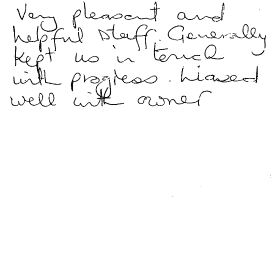 Very pleasant and
helpful staff. Generally
kept us in touch
with progress. Liaised
well with owner